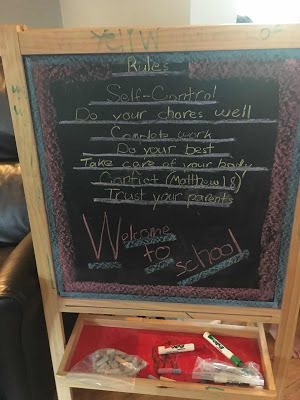 Rules
Self-Control
Do your chores well
Complete work
Do your best
Take care of your body
Conflict (Matthew 18)
Trust your parents
Welcome
to
school